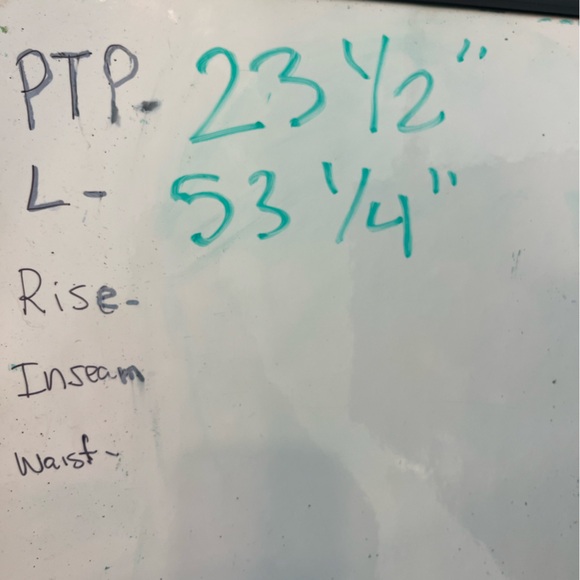 PTP- 23 1/2"
L- 53 1/4"
Rise-
Inseam
Waist-